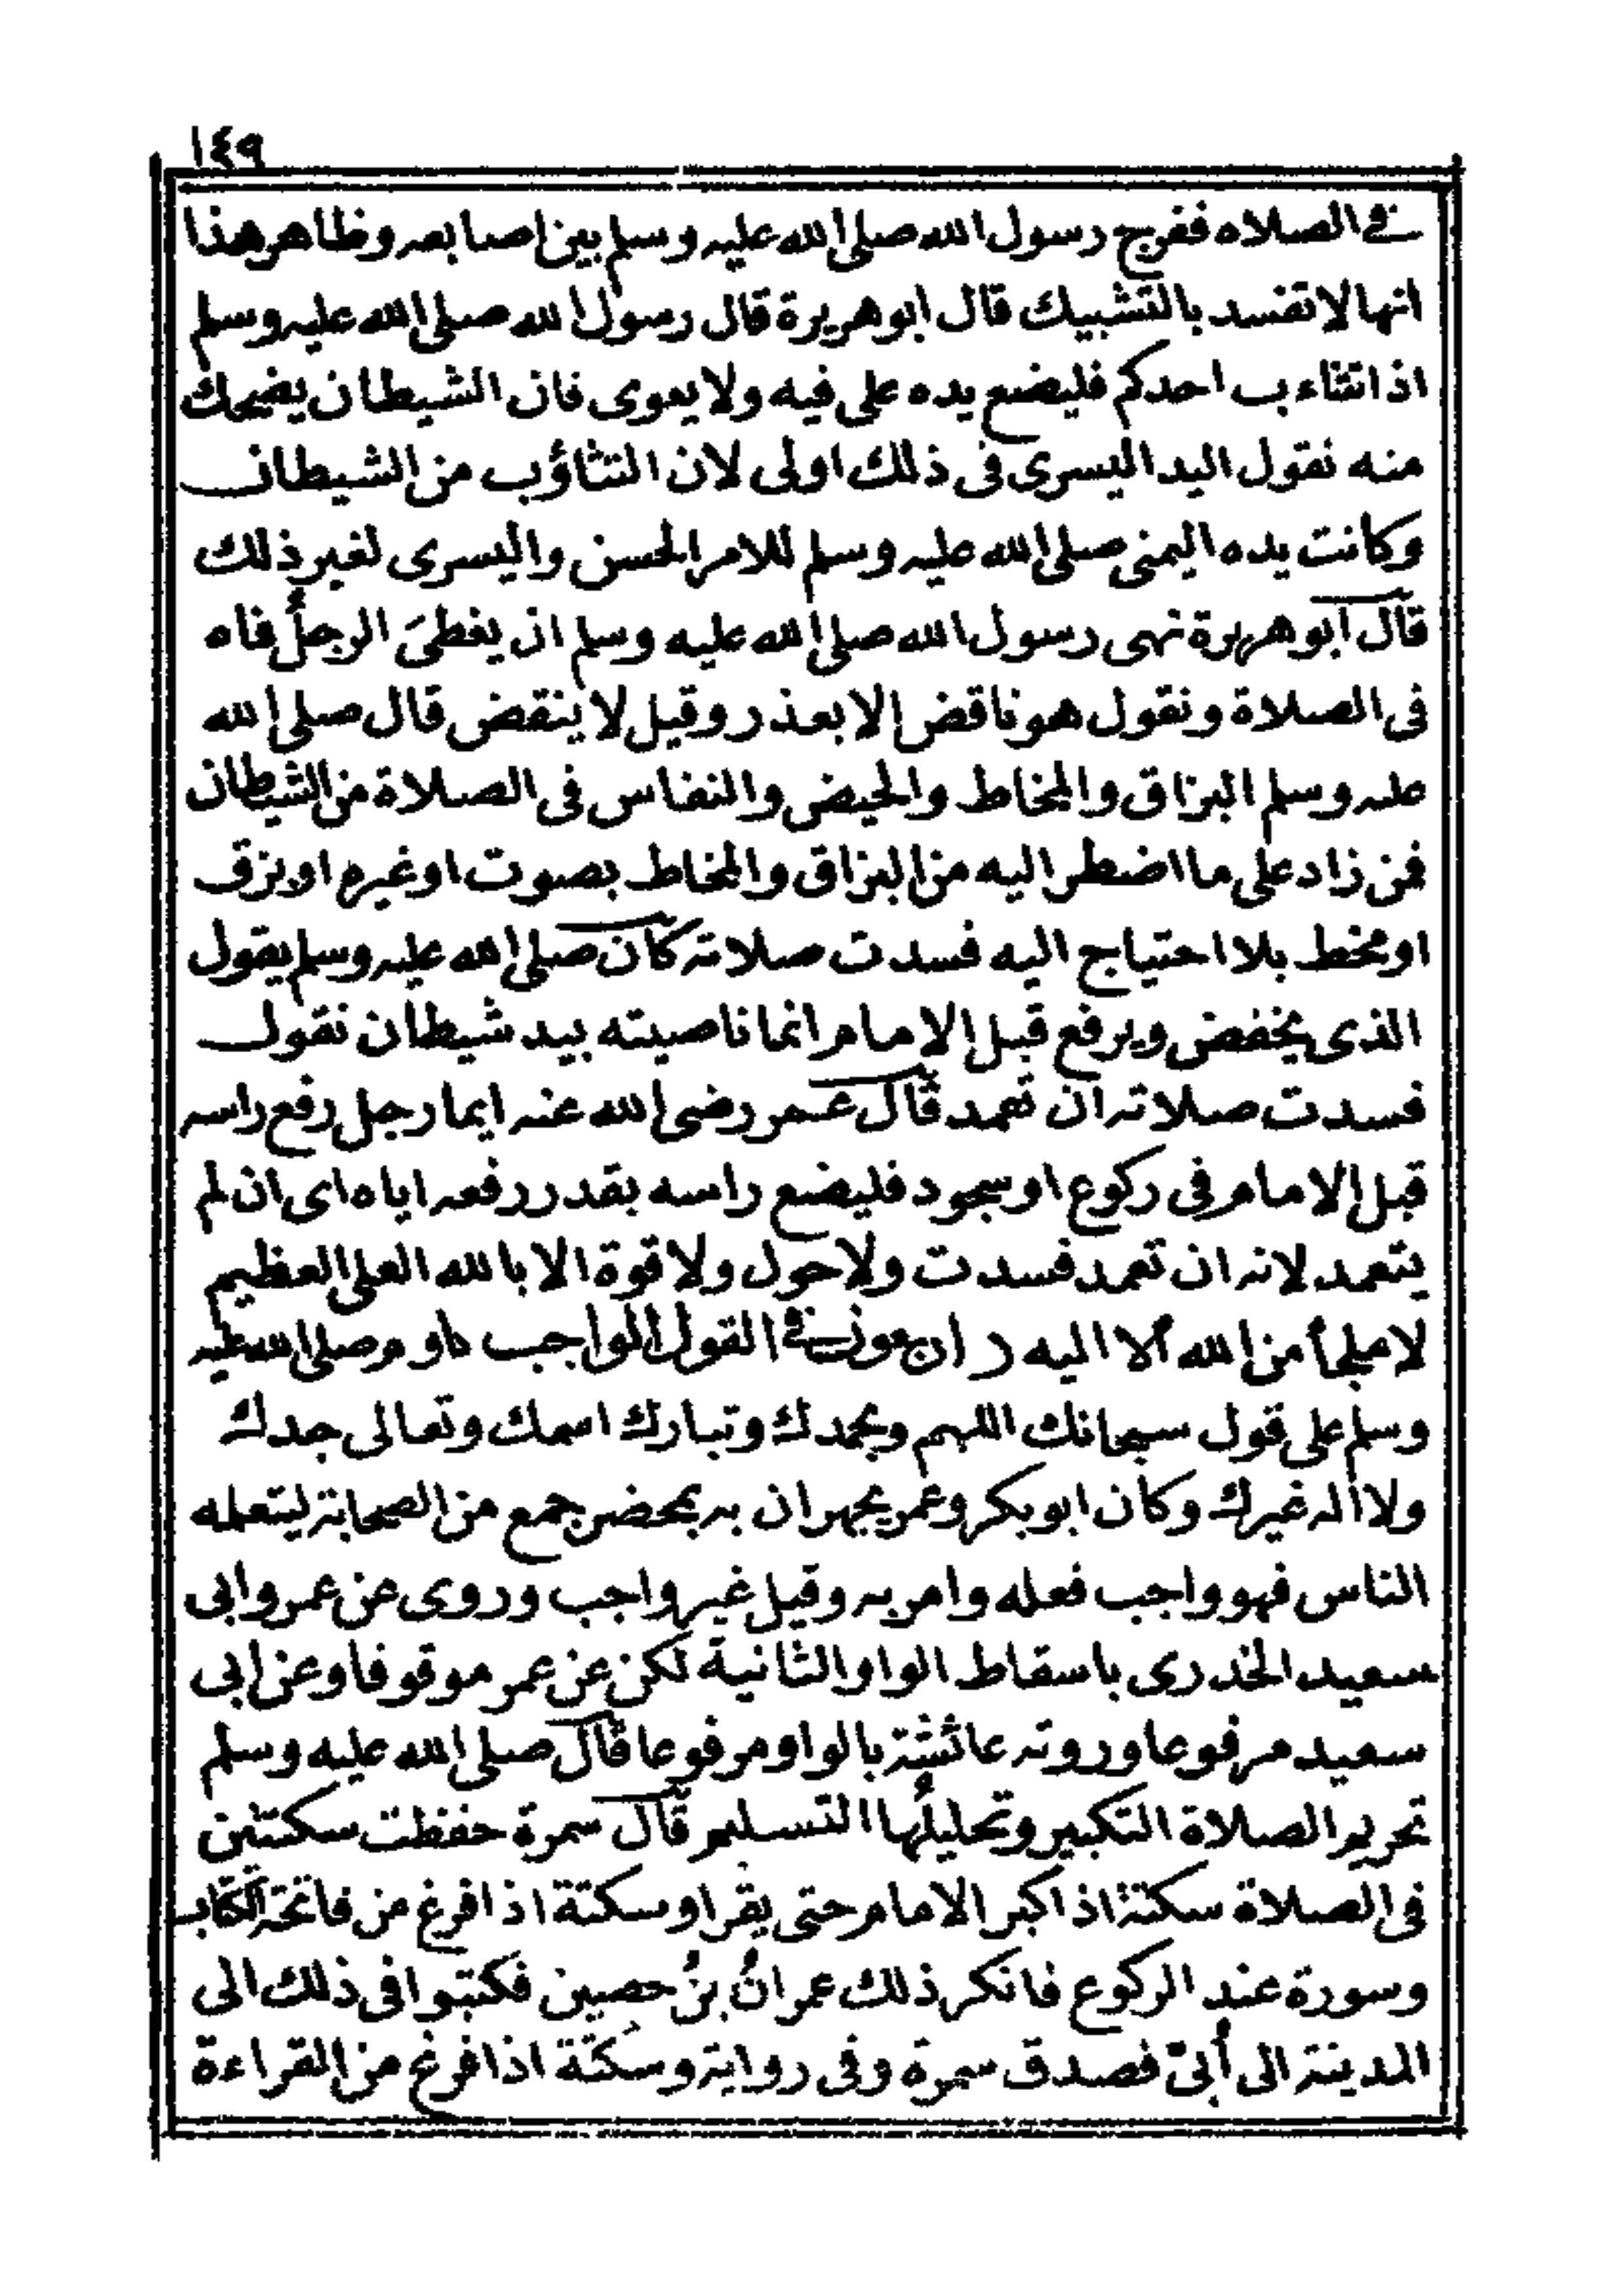 ١٤٩
في الصلاه ففرج رسول الله صلى الله عليه وسلم بين اصابعه وظاهر هذا
انها لا تفسد بالتشبيك قال ابو هريرة قال رسول الله صلى الله عليه وسلم
اذا تثاءب احدكم فليضع يده على فيه ولا يعوى فان الشيطان يضحك
منه نقول اليد اليسرى فى ذلك اولى لان التثاؤب من الشيطان
وكانت يده اليمنى صلى الله عليه وسلم للامر الحسن واليسرى لغير ذلك
قال ابو هريرة نهى رسول الله صلى الله عليه وسلم ان يغطىَ الرجلُ فاه
فى الصلاة ونقول هو ناقض الا بعذر وقيل لا ينقض قال صلى الله
عليه وسلم البزاق والمخاط والحيض والنفاس فى الصلاة من الشيطان
فمن زاد على ما اضطر اليه من البزاق والمخاط بصوت او غيره او بزق
او مخط بلا احتياج اليه فسدت صلاته كان صلى الله عليه وسلم يقول
الذى يخفض ويرفع قبل الامام انما ناصيته بيد شيطان نقول
فسدت صلاته ان تعمد قال عمر رضى الله عنه ايما رجل رفع راسه
قبل الامام فى ركوع او سجود فليضع راسه بقدر رفعه اياه اى ان لم
يتعمد لانه ان تعمد فسدت ولا حول ولا قوة الا بالله العلى العظيم
لا ملجأ من الله الا اليه في القول الواجب داوم صلى الله عليه
وسلم على قول سبحانك اللهم وبحمدك وتبارك اسمك وتعالى جدك
ولا اله غيرك وكان ابو بكر وعمر يجهران به بمحضر جمع من الصحابة ليتعلمه
الناس فهو واجب فعله وامر به وقيل غير واجب وروى عن عمر وابى
سعيد الخدرى باسقاط الواو الثانية لكن عن عمر موقوفا وعن ابى
سعيد مرفوعا وروته عائشة بالواو مرفوعا قال صلى الله عليه وسلم
تحريم الصلاة التكبير وتحليلُها التسليم قال سمرة حفظت سكتتين
فى الصلاة سكتة اذا كبر الامام حتى يقرا وسكتة اذا فرغ من فاتحة الكتاب
وسورة عند الركوع فانكر ذلك عمرانُ بنُ حصين فكتبوا فى ذلك الى
المدينة الى أُبىّ فصدق سمرة وفى رواية وسكتة اذا فرغ من القراءة